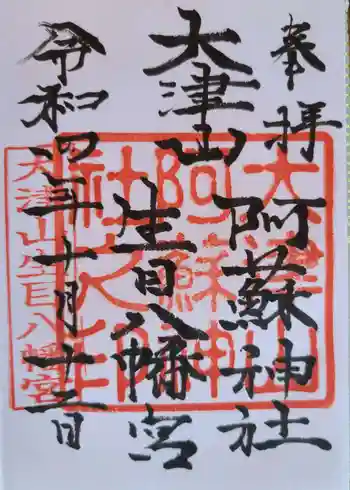 奉拝
阿蘇神社
大津山
生目八幡宮
令和四年十月十二日
大津山
阿蘇神
社之印
大津山生目八幡宮